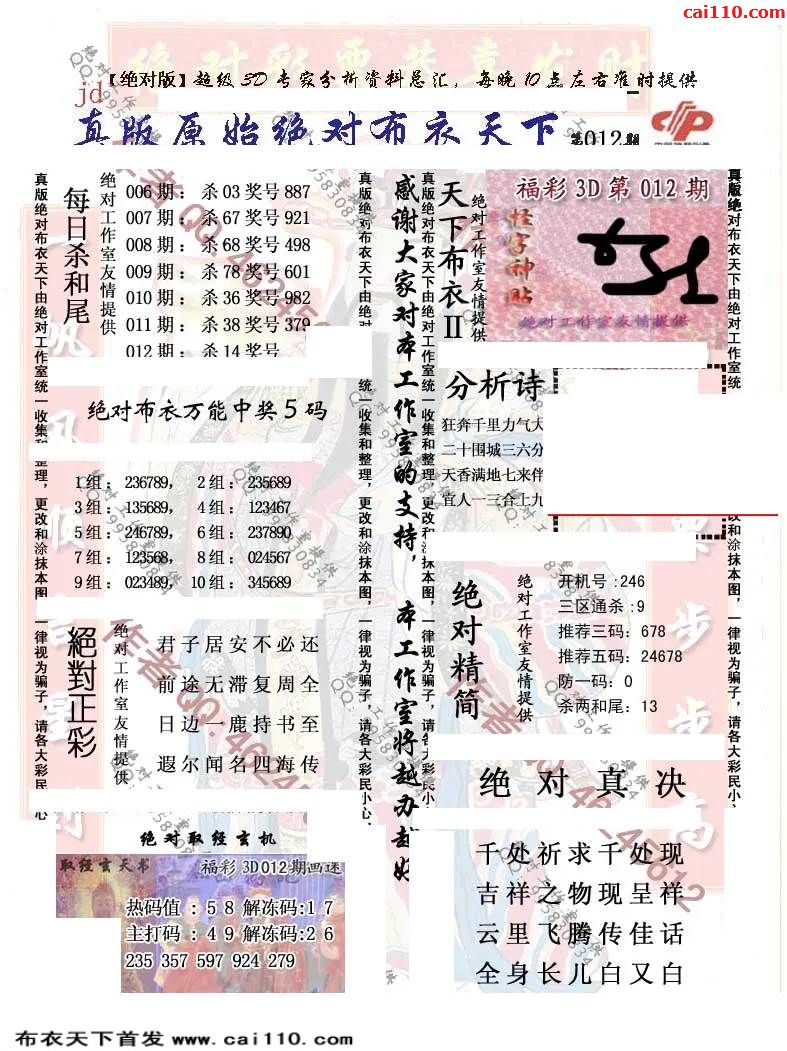 cai110.com
【绝对版】超级3D专家分析资料总汇，每晚10点左右准时提供
jd
真版原始绝对布衣天下
第012期
真版绝对布衣天下由绝对工作室统一收集和整理，更改和涂抹本图，一律视为骗子，请各大彩民小心
每日杀和尾
绝对工作室友情提供
006期：杀03奖号887
007期：杀67奖号921
008期：杀68奖号498
009期：杀78奖号601
010期：杀36奖号982
011期：杀38奖号379
012期：杀14奖号
绝对布衣万能中奖5码
1组：236789，2组：235689
3组：135689，4组：123467
5组：246789，6组：237890
7组：123568，8组：024567
9组：023489，10组：345689
絕對正彩
绝对工作室友情提供
君子居安不必还
前途无滞复周全
日边一鹿持书至
遐尔闻名四海传
绝对取经玄机
取经玄天书
福彩3D012期画迷
热码值：58解冻码:17
主打码：49解冻码:26
235 357 597 924 279
感谢大家对本工作室的支持，本工作室将越办越好
天下布衣II
绝对工作室友情提供
福彩3D第012期
怪字神贴
绝对工作室友情提供
分析诗
狂奔千里力气大
二十围城三六分
天香满地七来伴
宜人一三合上九
绝对精简
绝对工作室友情提供
开机号:246
三区通杀:9
推荐三码：678
推荐五码：24678
防一码：0
杀两和尾：13
绝对真决
千处祈求千处现
吉祥之物现呈祥
云里飞腾传佳话
全身长儿白又白
布衣天下首发 www.cai110.com